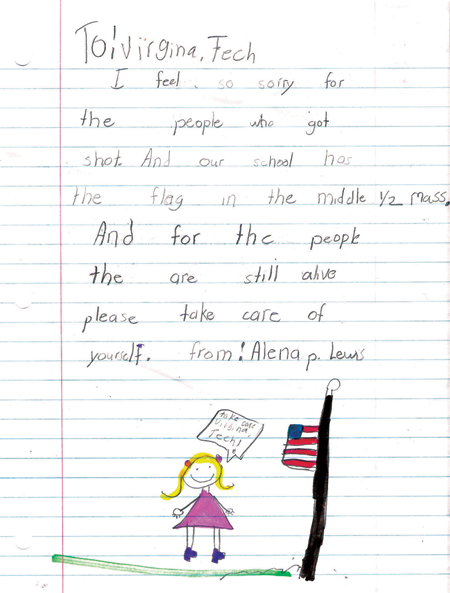 To! Virgina, Tech
I feel so sorry for
the people who got
shot. And our school has
the flag in the middle 1/2 mass.
And for the people
the are still alive
please take care of
yourself. from! Alena p. Lewis
take care
Virgina,
Tech!